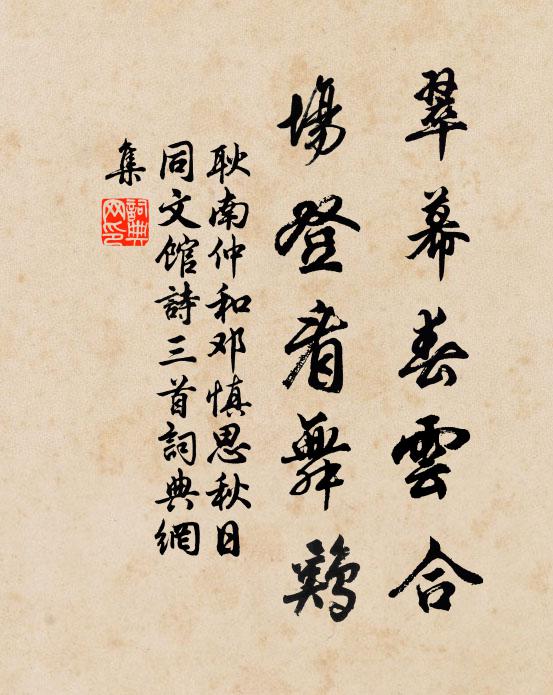 翠幕春雲合
場登看舞鷄
耿南仲和邓慎思秋日
同文馆詩三首詞典網
集
詞典網印